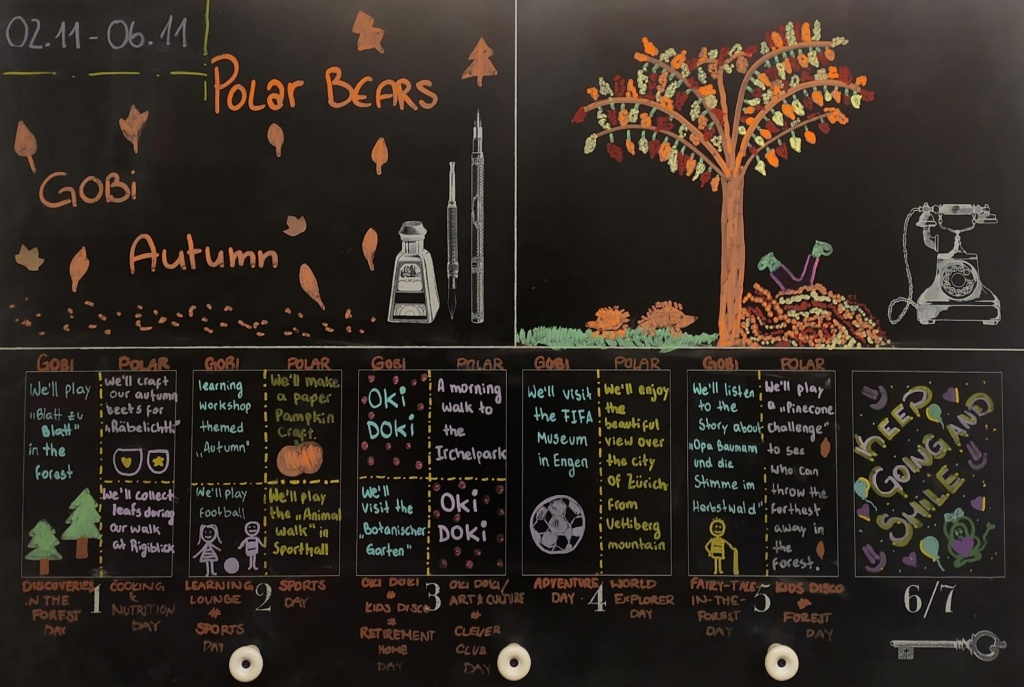 02.11 - 06.11
Polar BEARS
GOBi
Autumn
GOBI
We'll play
"Blatt zu
Blatt"
in the
forest
POLAR
We'll craft
our autumn
beets for
"Räbeliechtli"
We'll collect
leafs during
our walk
at Rigiblick
DISCOVERIES
IN THE
FOREST
DAY
1
COOKING
&
NUTRITION
DAY
GOBI
learning
workshop
themed
"Autumn"
We'll play
football
POLAR
We'll make
a paper
Pumpkin
Craft.
We'll play
the "Animal
walk" in
Sporthall
LEARNING
LOUNGE
#
SPORTS
DAY
2
SPORTS
DAY
GOBI
OKi
DOKi
We'll
visit the
"Botanischer
Garten"
POLAR
A morning
walk to
the
Irchelpark
OKi
DOKi
OKI DOKI
#
KIDS DISCO
#
RETIREMENT
HOME
DAY
3
OKI DOKI/
ART & CULTURE
#
CLEVER
CLUB
DAY
GOBI
We'll visit
the FIFA
Museum
in Engen
POLAR
We'll enjoy
the
beautiful
view over
the city
Of Zürich
from
Uetliberg
mountain
ADVENTURE
DAY
4
WORLD
EXPLORER
DAY
GOBI
We'll listen
to the
Story about
"Opa Baumann
und die
Stimme im
Herbstwald"
POLAR
We'll play
a "Pinecone
Challenge"
to see
who can
throw the
furthest
away in
the
forest.
FAIRY-TALE-
IN-THE-
FOREST
DAY
5
KIDS DISCO
#
FOREST
DAY
KEEP
GOING AND
SMILE
6/7